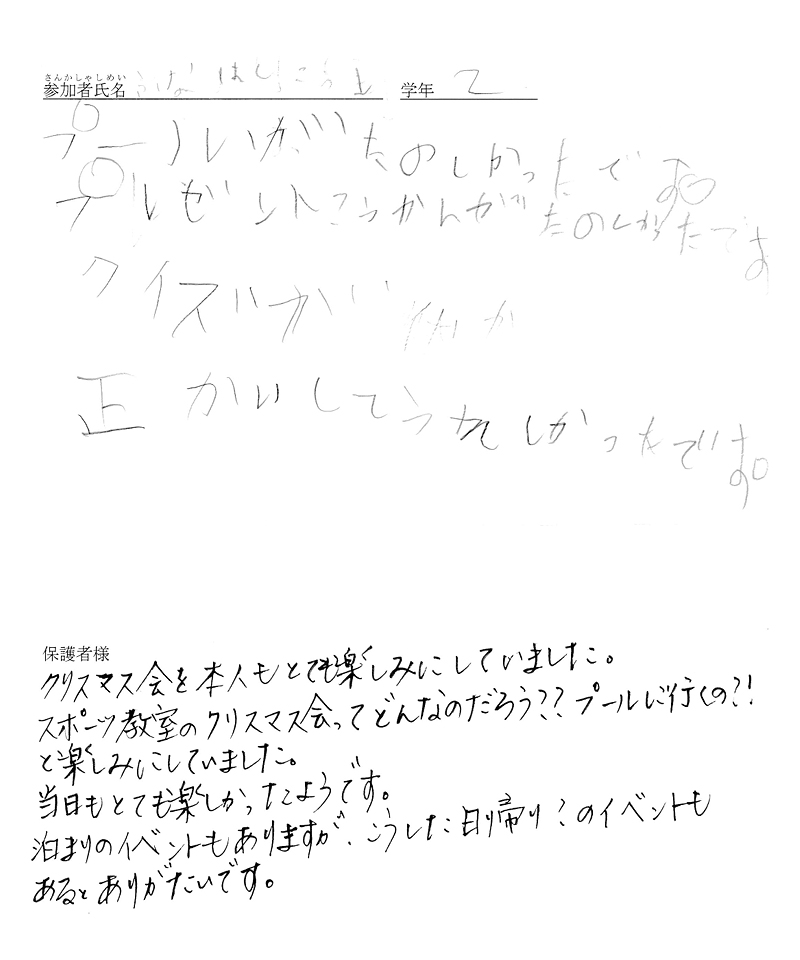 さんかしゃしめい
参加者氏名
学年 2
プールいがいがたのしかったです。
プレゼントこうかんがたのしかったです
クイズが
正かいしてうれしかったです。
保護者様
クリスマス会を本人もとても楽しみにしていました。
スポーツ教室のクリスマス会ってどんなのだろう??プールに行くの?!
と楽しみにしていました。
当日もとても楽しかったようです。
泊まりのイベントもありますが、こうした日帰り?のイベントも
あるとありがたいです。